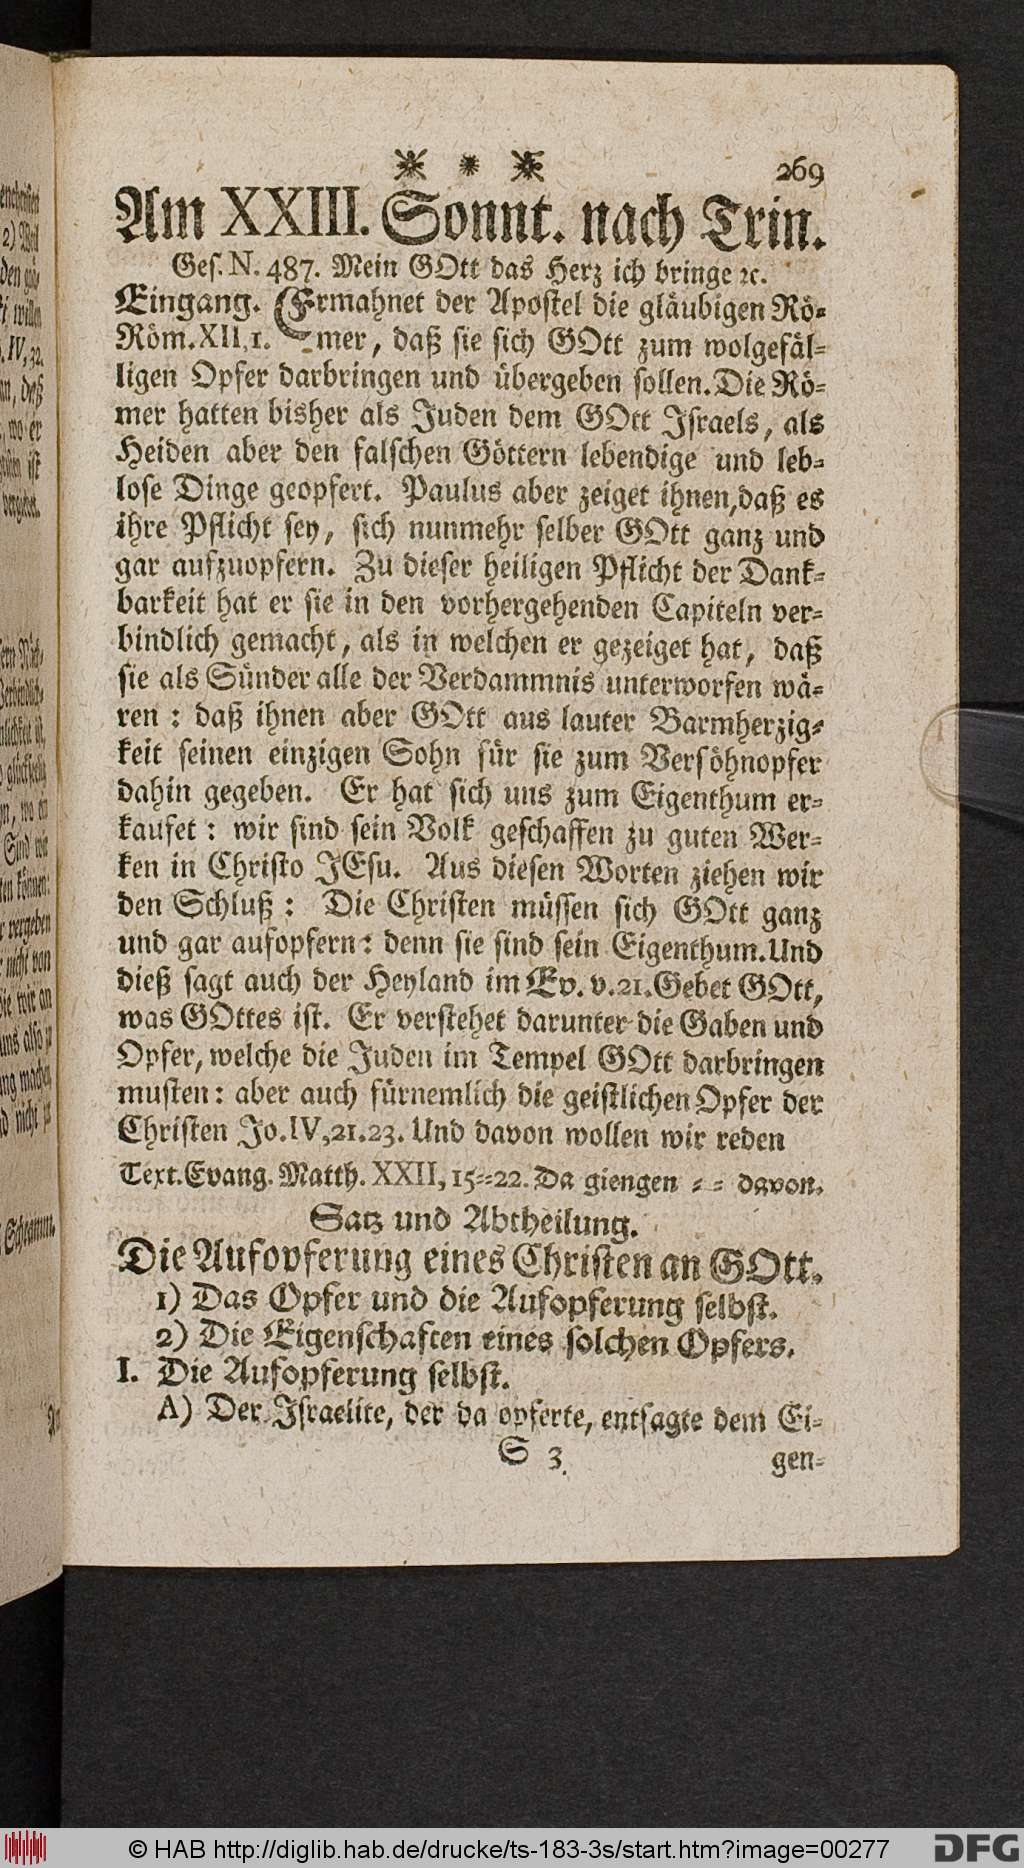 269
Am XXIII. Sonnt. nach Trin.
Ges. N. 487. Mein GOtt das Herz ich bringe ꝛc.
Eingang. Ermahnet der Apostel die gläubigen Rö-
Röm. XII, 1. mer, daß sie sich GOtt zum wolgefäl-
ligen Opfer darbringen und übergeben sollen. Die Rö-
mer hatten bisher als Juden dem GOtt Israels, als
Heiden aber den falschen Göttern lebendige und leb-
lose Dinge geopfert. Paulus aber zeiget ihnen, daß es
ihre Pflicht sey, sich nunmehr selber GOtt ganz und
gar aufzuopfern. Zu dieser heiligen Pflicht der Dank-
barkeit hat er sie in den vorhergehenden Capiteln ver-
bindlich gemacht, als in welchen er gezeiget hat, daß
sie als Sünder alle der Verdammnis unterworfen wä-
ren : daß ihnen aber GOtt aus lauter Barmherzig-
keit seinen einzigen Sohn für sie zum Versöhnopfer
dahin gegeben. Er hat sich uns zum Eigenthum er-
kaufet : wir sind sein Volk geschaffen zu guten Wer-
ken in Christo JEsu. Aus diesen Worten ziehen wir
den Schluß : Die Christen müssen sich GOtt ganz
und gar aufopfern : denn sie sind sein Eigenthum. Und
dieß sagt auch der Heyland im Ev. v. 21. Gebet GOtt,
was GOttes ist. Er verstehet darunter die Gaben und
Opfer, welche die Juden im Tempel GOtt darbringen
musten : aber auch fürnemlich die geistlichen Opfer der
Christen Jo. IV, 21. 23. Und davon wollen wir reden
Text. Evang. Matth. XXII, 15-22. Da giengen - - davon.
Satz und Abtheilung.
Die Aufopferung eines Christen an GOtt.
1) Das Opfer und die Aufopferung selbst.
2) Die Eigenschaften eines solchen Opfers.
I. Die Aufopferung selbst.
A) Der Israelite, der da opferte, entsagte dem Ei-
S 3
gen-
© HAB http://diglib.hab.de/drucke/ts-183-3s/start.htm?image=00277
DFG